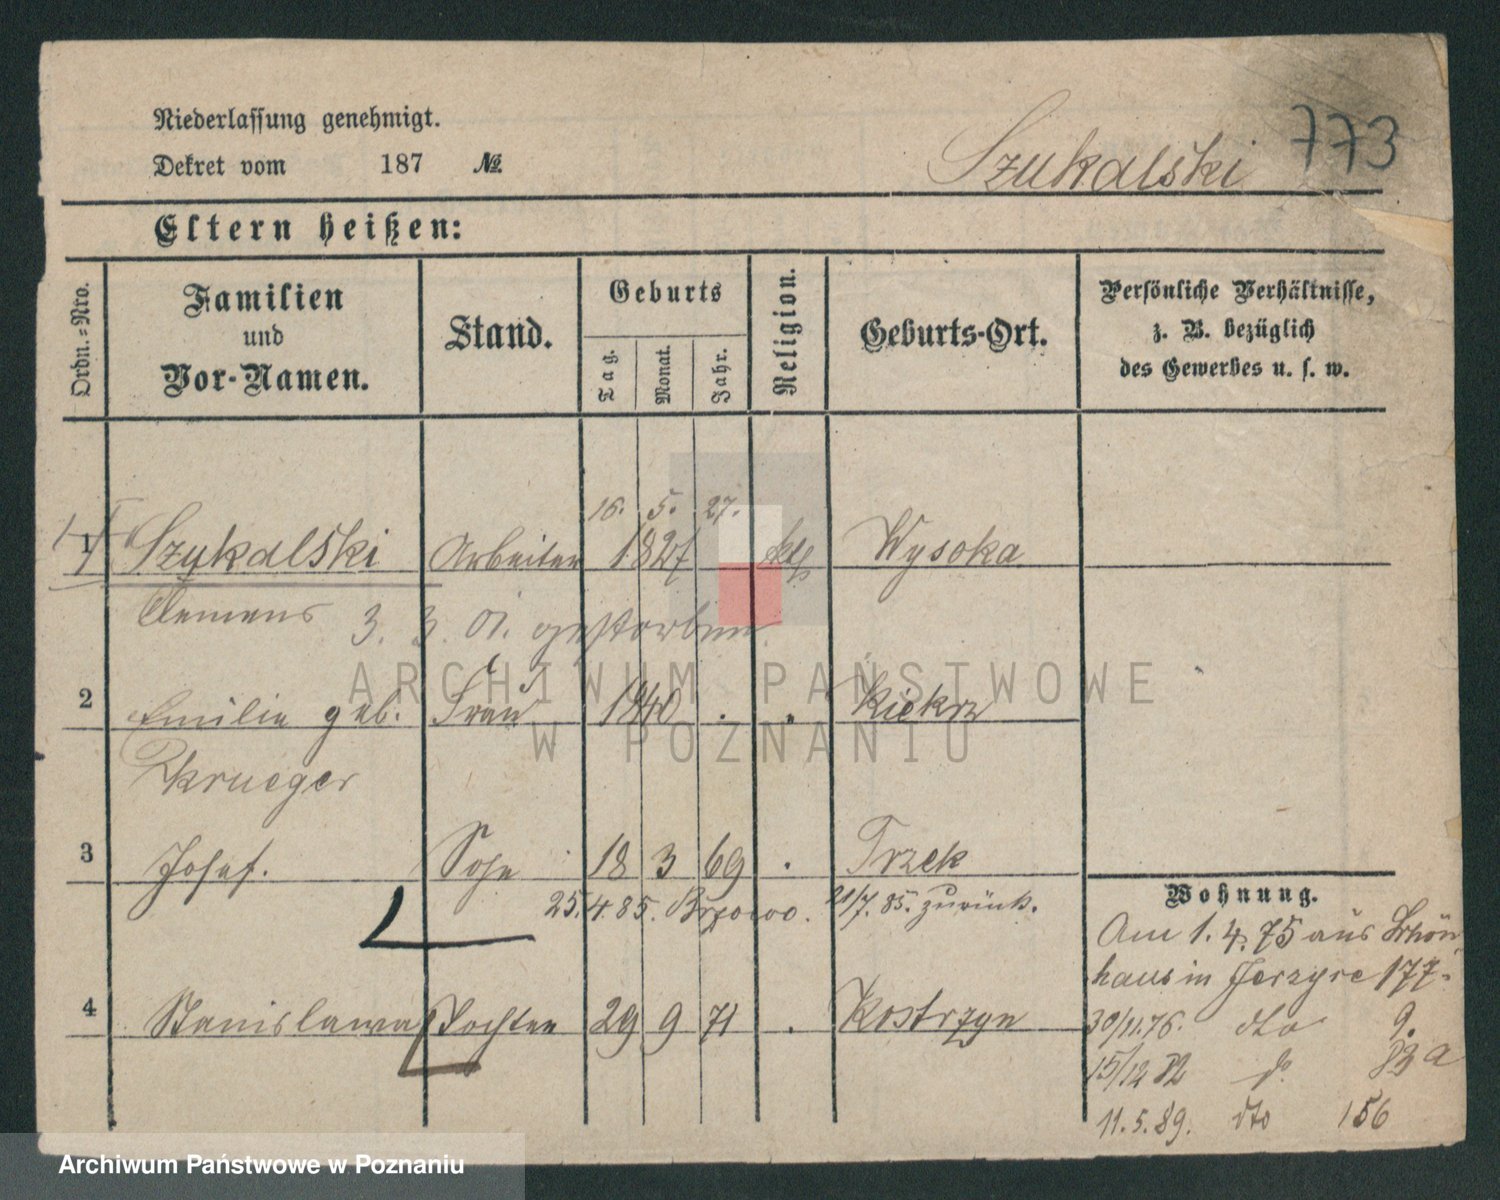 Niederlassung genehmigt.
Dekret vom 187 №
Szukalski 773
Eltern heißen:
Ordn.-Nro.
Familien und Vor-Namen.
Stand.
Geburts
Tag. Monat. Jahr.
Religion.
Geburts-Ort.
Persönliche Verhältnisse,
z. B. bezüglich
des Gewerbes u. s. w.
16. 5. 27.
1 Szukalski Arbeiter 1827 kth Wysoka
Clemens 3. 3. 01. gestorben
2 Emilie geb. Frau 1840 . " Kiekrz
Krueger
3 Josef. Sohn 18 3 69 . Trzek
25. 4. 85. 21/7. 85. zurück.
4 Stanislawa Tochter 29 9 71 . Kostrzyn
Wohnung.
Am 1. 4. 75 aus Schön
haus in Jerzyce 177.
30/11.76. dto 9.
15/12 82 do 83 a
11. 5. 89. dto 156
ARCHIWUM PAŃSTWOWE
W POZNANIU
Archiwum Państwowe w Poznaniu